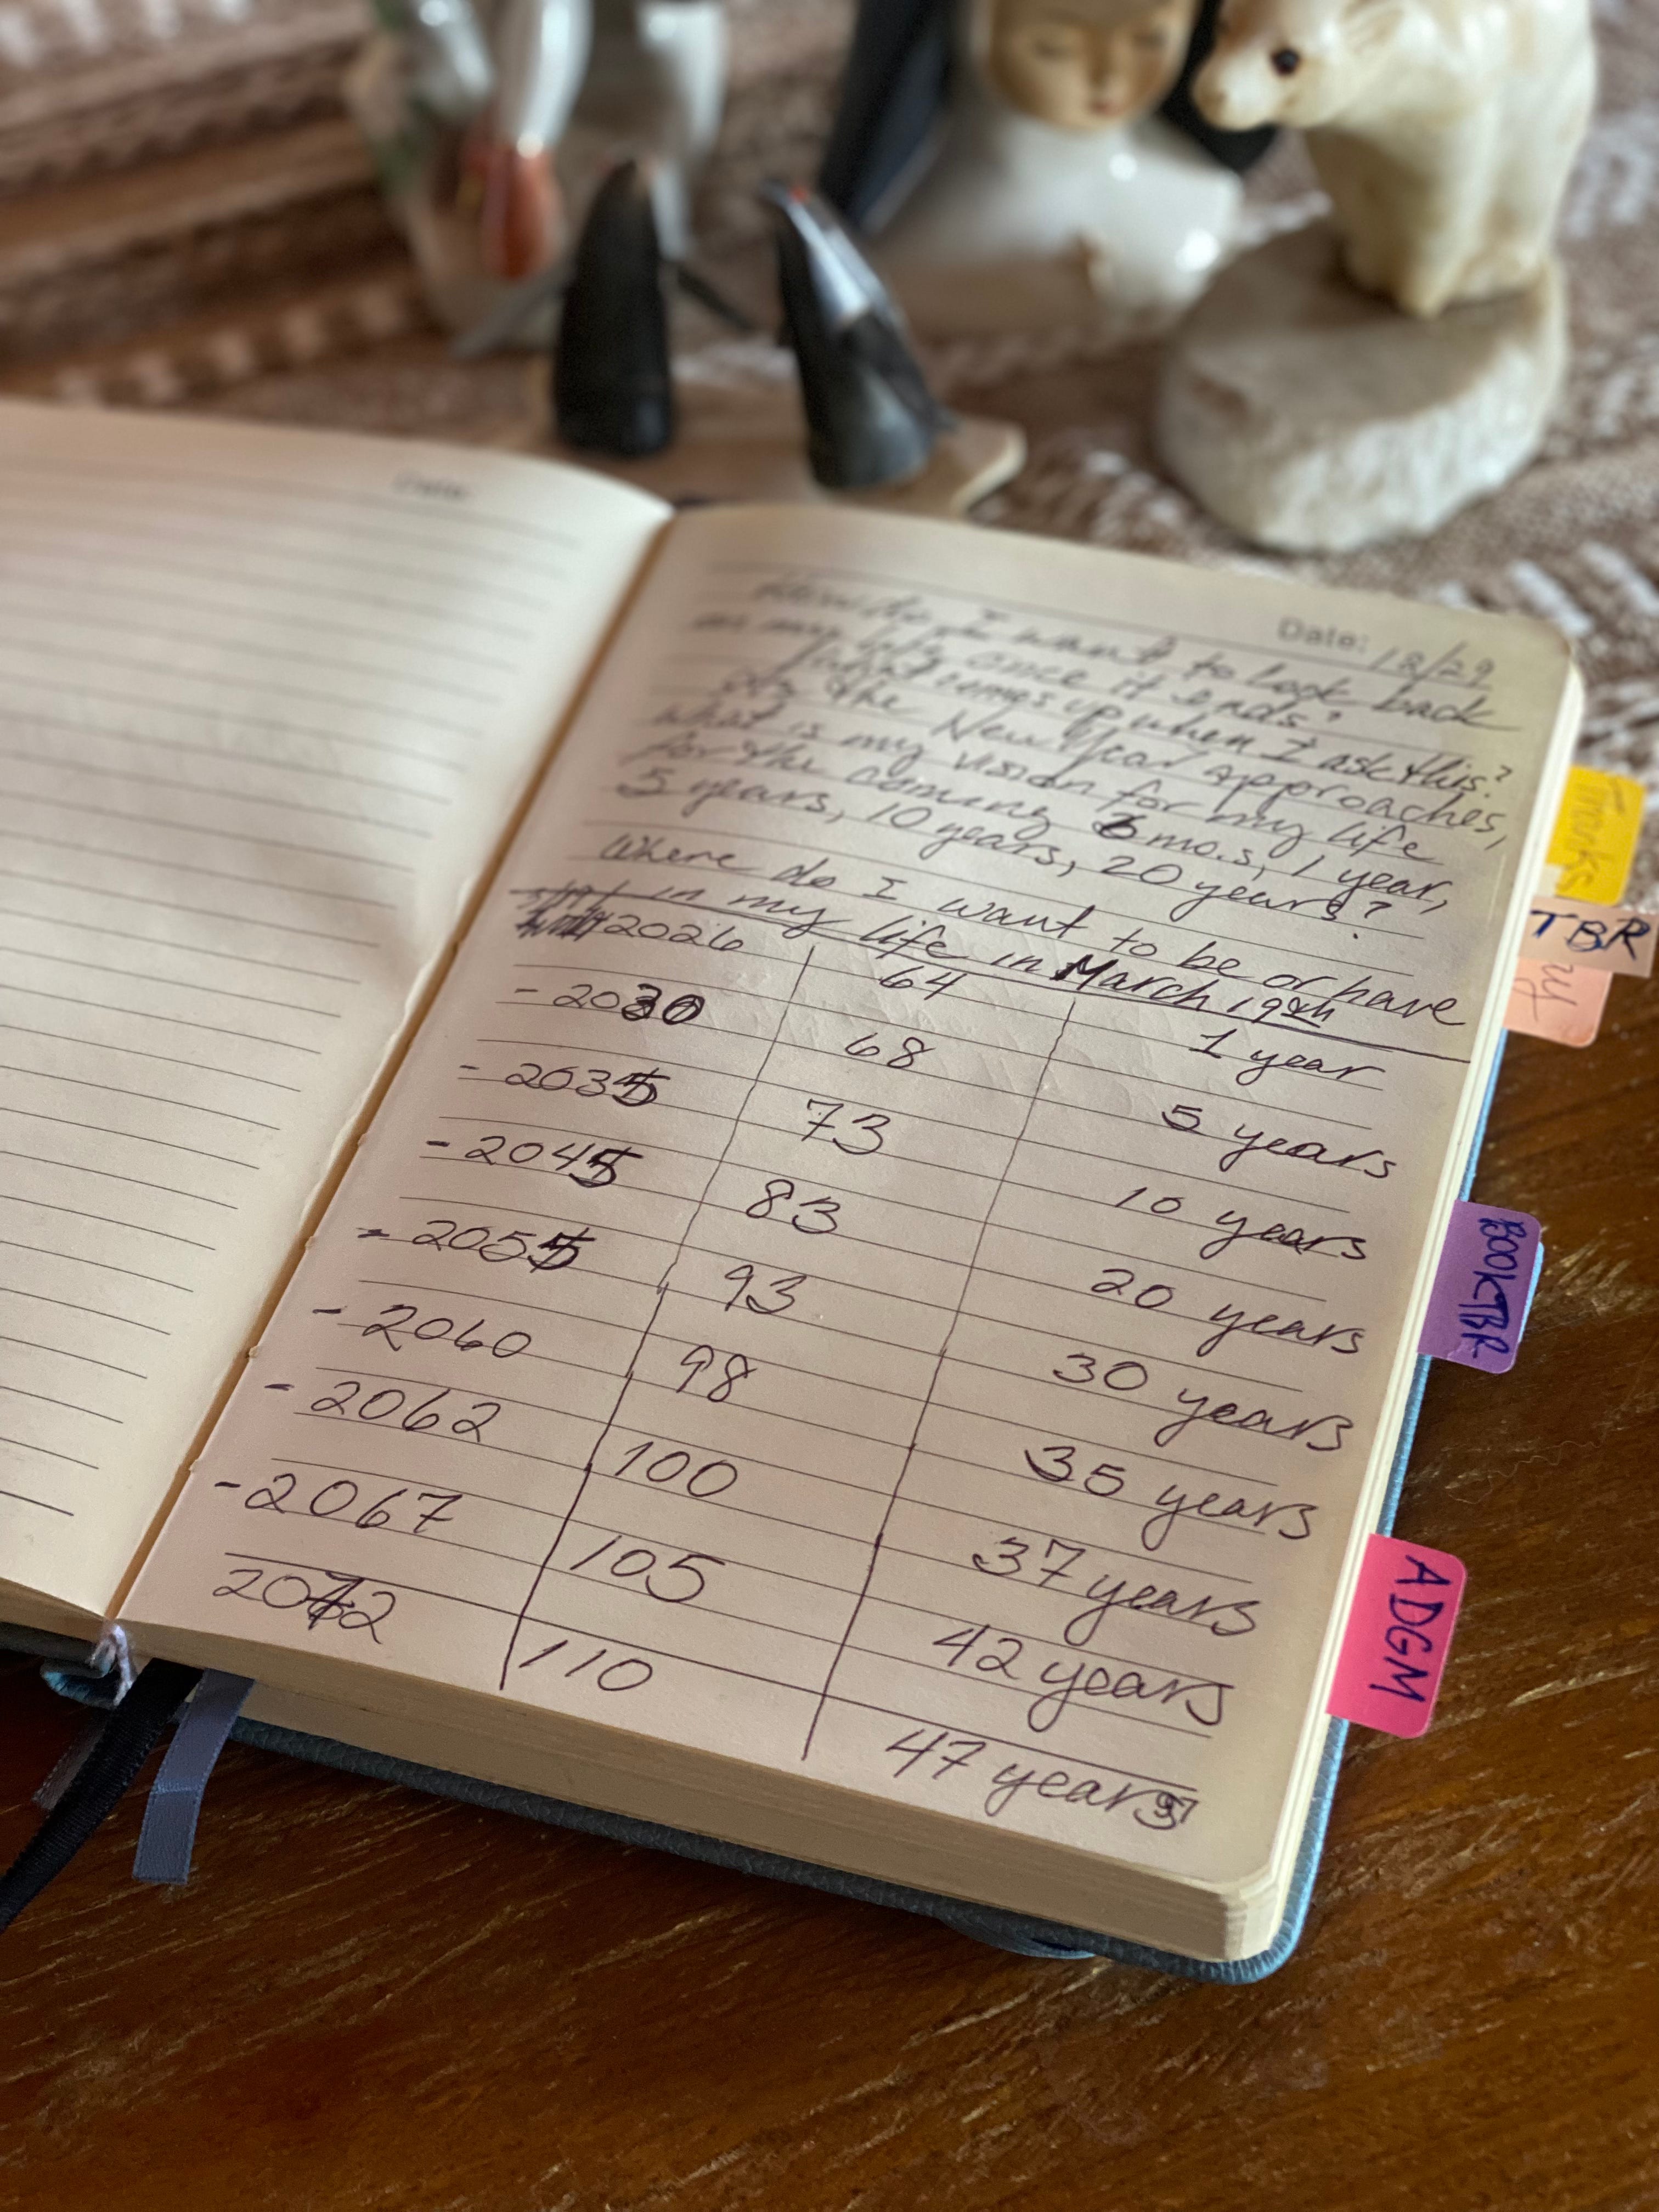 Date:
Date: 12/29
How do I want to look back
on my life once it ends?
What comes up when I ask this?
As the New Year approaches,
what is my vision for my life
for the coming 6 mo.s, 1 year,
5 years, 10 years, 20 years?
Where do I want to be or have
in my life in March 19th
2026 64 1 year
- 2030 68 5 years
- 2035 73 10 years
- 2045 83 20 years
- 2055 93 30 years
- 2060 98 35 years
- 2062 100 37 years
- 2067 105 42 years
2072 110 47 years
TBR
BOOKTBR
ADGM